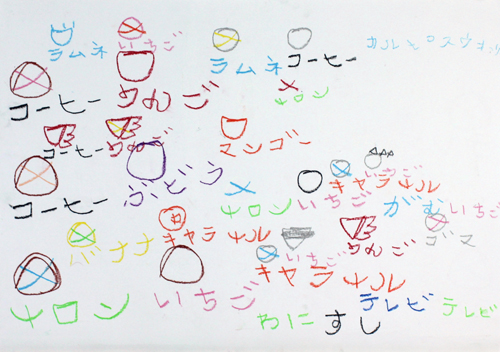 ラムネ いちご ラムネ コーヒー
コーヒー りんご メロン
コーヒー りんご マンゴー
コーヒー ぶどう メロン いちご キャラメル いちご がむ いちご
バナナ キャラメル いちご りんご ゴマ
メロン いちご キャラメル
わに すし テレビ テレビ